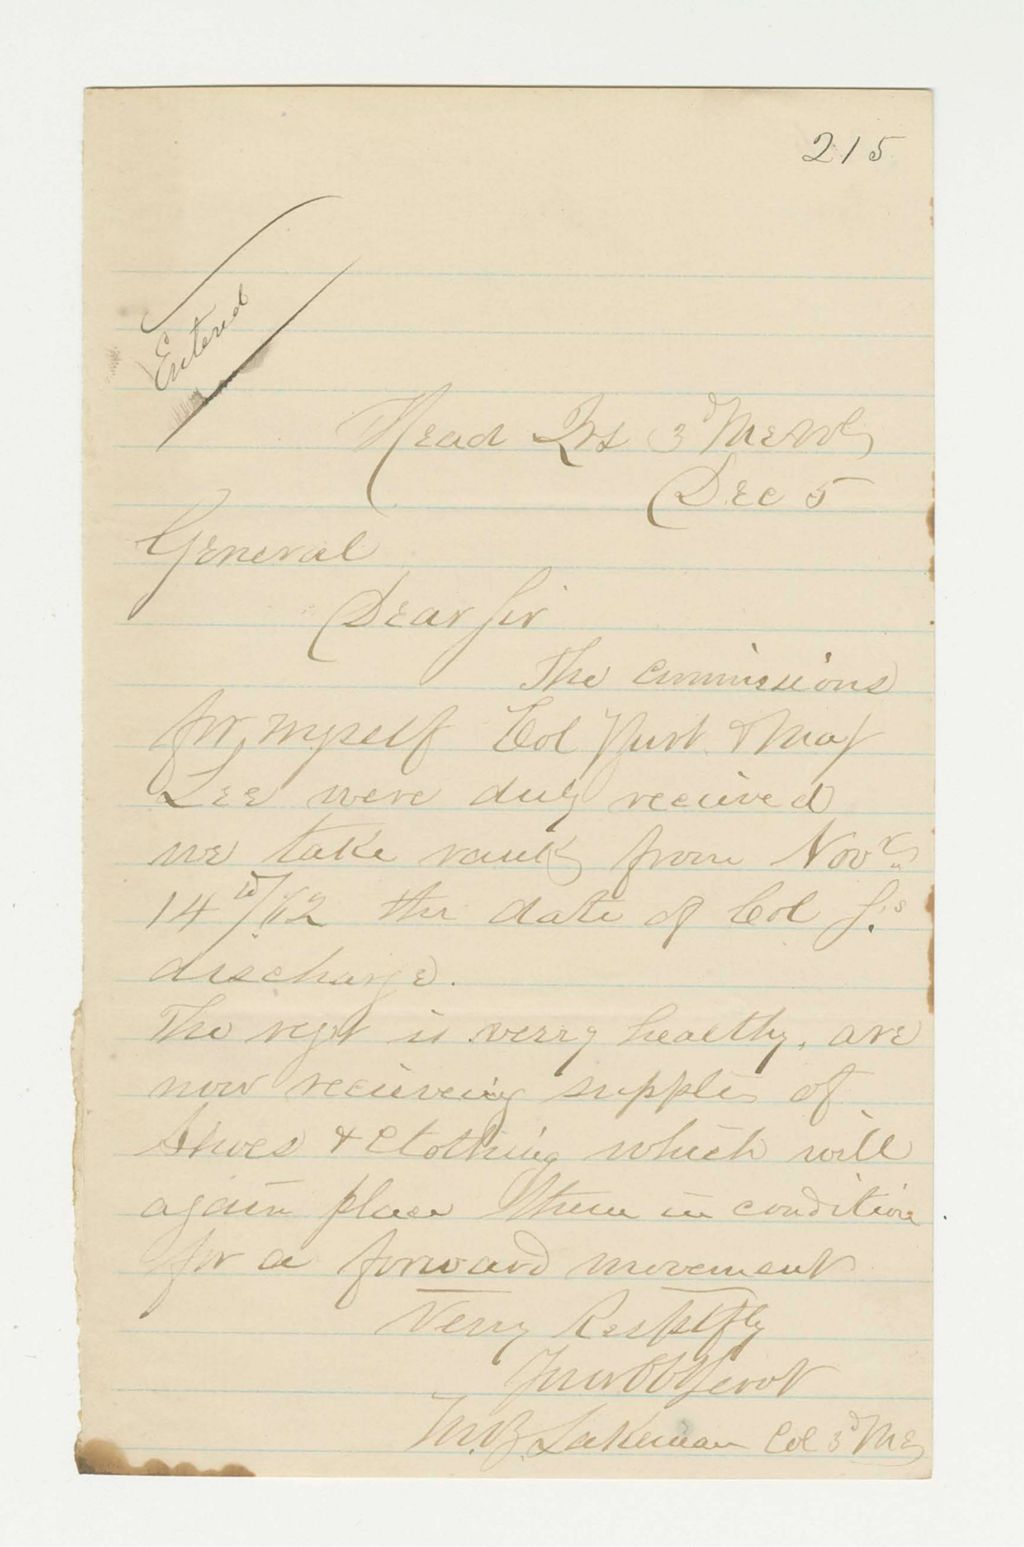 215
Entered
Head Qrs 3d Me Vols
Dec 5
General
Dear Sir
The commissions
for myself Col Burt & Maj
Lee were duly recieved
we take rank from Novr
14th/62 the date of Col
discharge.
The regt is verry healthy, are
now recieveing supplies of
Shoes & Clothing which will
again place them in condition
for a forward movement
Verry Resptfly
Your Obt Servt
M.B. Lakeman Col 3d Me